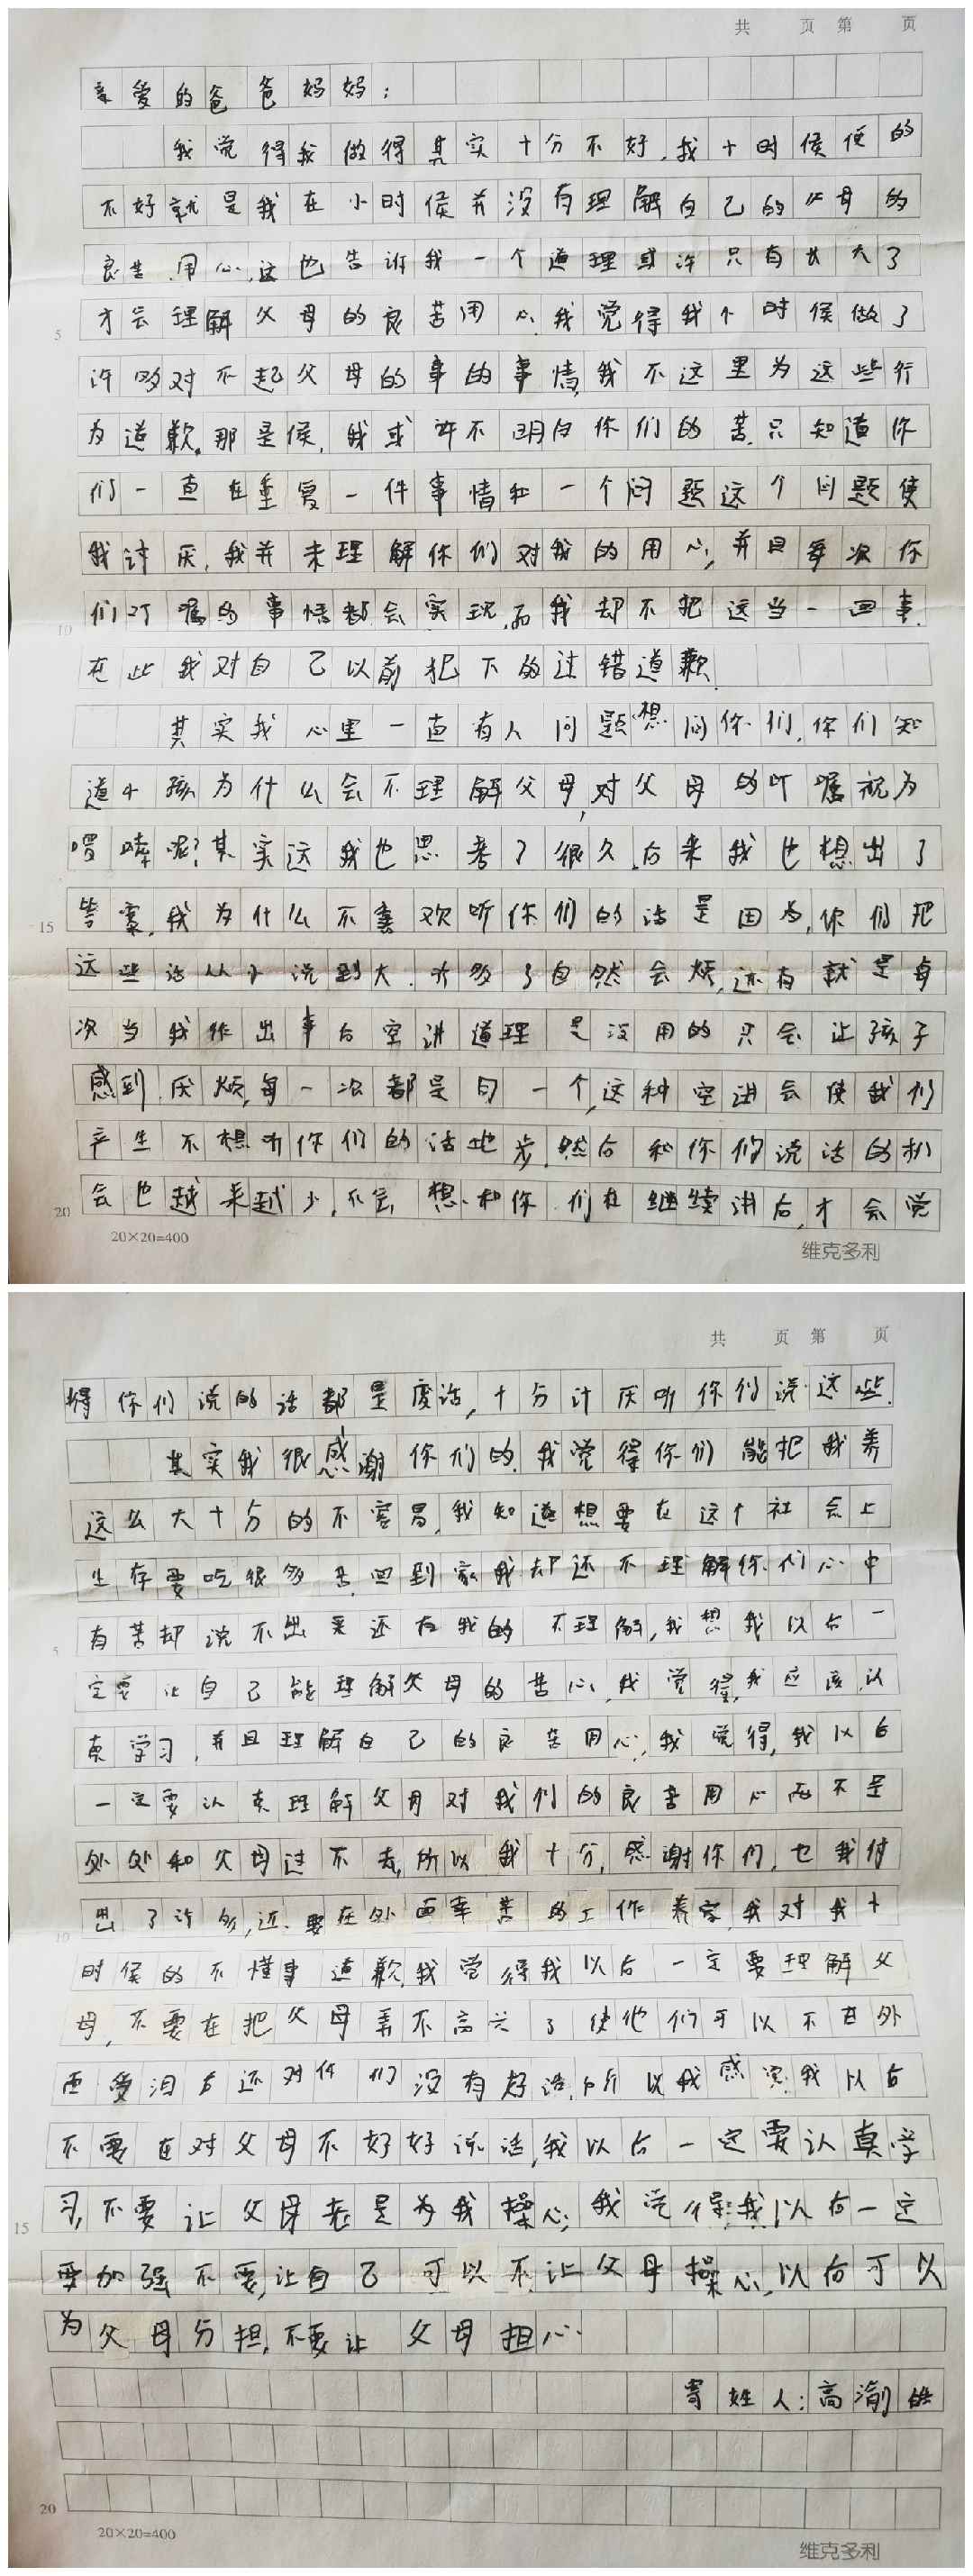 共 页 第 页
亲爱的爸爸妈妈：
我觉得我做得其实十分不好，我十时侯使的
不好就是我在小时侯并没有理解自己的父母的
良 用心，这也告诉我一个道理或许只有长大了
5 才会理解父母的良苦用心，我觉得我个时侯做了
许多对不起父母的事的事情，我不这里为这些行
为道歉。那是侯，我或许不明白你们的苦，只知道你
们一直在重复一件事情和一个问题这个问题使
我讨厌，我并未理解你们对我的用心，并且每次你
10 们叮嘱的事情都会实现，而我却不把这当一回事，
在此我对自己以前犯下的过错道歉
其实我心里一直有人问题想问你们，你们知
道小孩为什么会不理解父母，对父母的叮嘱视为
啰嗦呢？其实这我也思考了很久，后来我也想出了
15 答案，我为什么不喜欢听你们的话是因为，你们把
这些话从小说到大，听多了自然会烦，还有就是每
次当我作出事后空讲道理是没用的只会让孩子
感到厌烦，每一次都是同一个，这种空讲会使我们
产生不想听你们的话地步，然后和你们说话的机
20 会也越来越少，不会想和你们在继续讲后，才会觉
20×20=400
维克多利
共 页 第 页
得你们说的话都是废话，十分讨厌听你们说这些。
其实我很感谢你们的，我觉得你们能把我养
这么大十分的不容易，我知道想要在这个社会上
生存要吃很多苦，回到家我却还不理解你们心中
5 有苦却说不出来还有我的不理解，我想我以后一
定要让自己能理解父母的苦心，我觉得，我应该认
真学习，并且理解自己的良苦用心，我觉得，我以后
一定要认真理解父母对我们的良苦用心而不是
处处和父母过不去，所以我十分，感谢你们，也我付
10 出了许多，还要在外面辛苦的工作养家，我对我十
时侯的不懂事道歉，我觉得我以后一定要理解父
母，不要在把父母弄不高兴了使他们可以不在外
面受泪后还对他们没有好语，所以我感觉我以后
不要在对父母不好好说话，我以后一定要认真学
15 习，不要让父母老是为我操心，我觉得，我以后一定
要加强不要，让自己可以不让父母操心，以后可以
为父母分担，不要让父母担心
寄姓人：高渝
20
20×20=400
维克多利